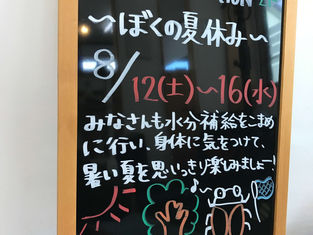 〜ぼくの夏休み〜
8/12(土)〜16(水)
みなさんも水分補給をこまめ
に行い、身体に気をつけて、
暑い夏を思いっきり楽しみましょー!